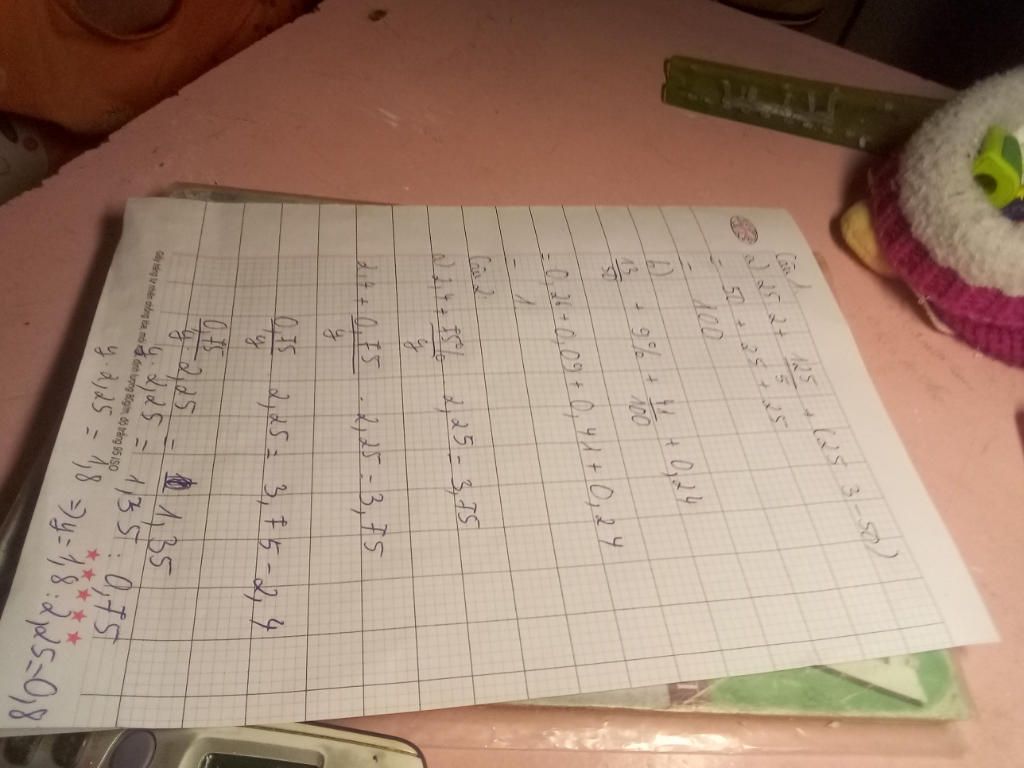 Câu 1
a) 25.2 + 125/5 + (25.3 - 50)
= 50 + 25 + 25
= 100
b) 13/50 + 9% + 41/100 + 0,24
= 0,26 + 0,09 + 0,41 + 0,24
= 1
Câu 2
a) 2,4 + 75%/y . 2,25 = 3,75
2,4 + 0,75/y . 2,25 = 3,75
0,75/y 2,25 = 3,75 - 2,4
0,75/y 2,25 = 1,35
y. 2,25 = 1,35 : 0,75
y 2,25 = 1,8 => y = 1,8 : 2,25 = 0,8